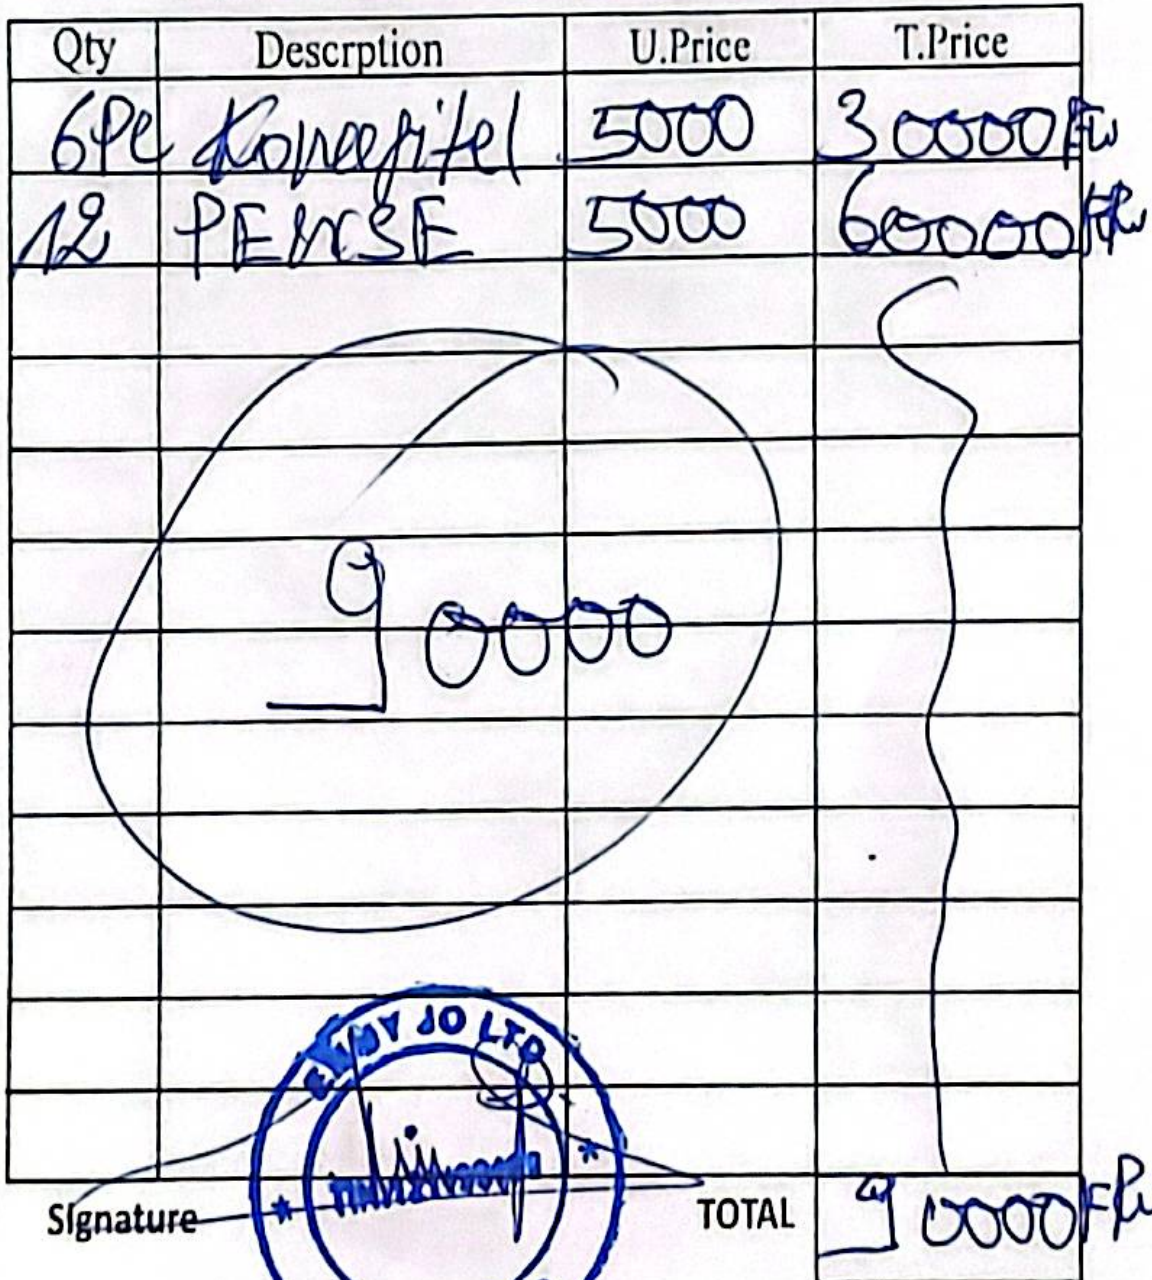 Qty Descrption U.Price T.Price
6Pc 5000 30000 Frw
12 PENSE 5000 60000 FRw
90000
JO LTD
Signature TOTAL 90000 FRw